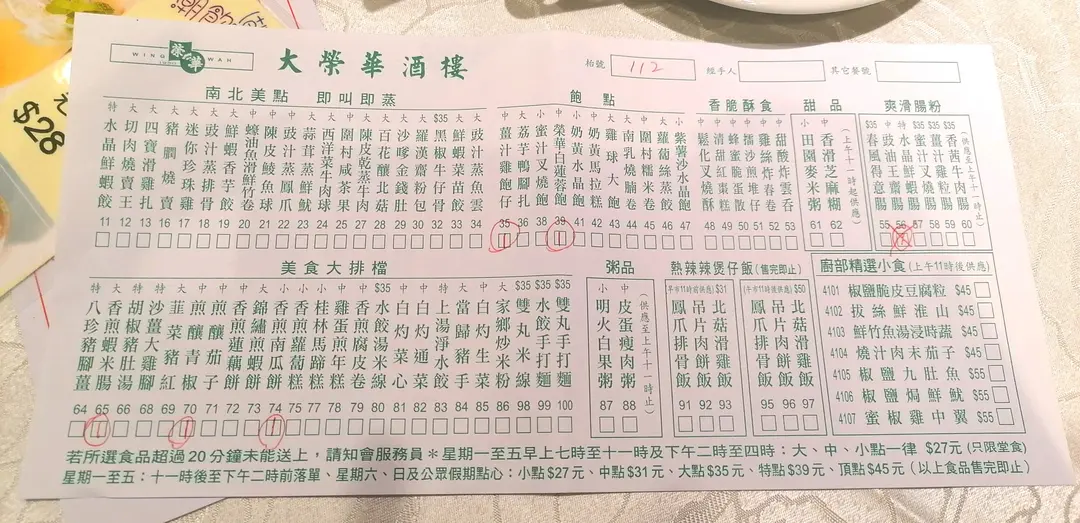 WING WAH
榮華
大榮華酒樓
枱號 112
經手人
其它餐號
$28
南北美點 即叫即蒸
特 水晶鮮蝦餃 11
大 切肉燒賣王 12
大 四寶滑雞扎 13
大 豬膶燒賣 14
大 迷你珍珠雞
大 豉汁蒸排骨
大 鮮蝦香芋餃
大 蠔油魚滑鮮竹卷
中 陳皮鯪魚球
中 豉汁蒸鳳爪
大 蒜茸蒸鮮魷
中 西洋菜牛肉球
中 圍村咸茶果
大 陳皮乾蒸牛肉
大 百花釀北菇 28
大 沙嗲金錢肚 29
大 羅漢齋粉包 30
$35 黑椒牛仔骨 31
大 鮮蝦菜苗餃 33
大 豉汁蒸魚雲 34
飽點
中 薑汁雞飽仔 35
大 荔芋鴨腳扎 36
小 蜜汁叉燒飽 38
中 榮華白蓮蓉飽 39
小 奶黃水晶飽 41
小 奶黃馬拉糕 42
大 雞球大飽 43
大 南乳燒腩卷 44
中 圍村糯米卷 45
中 蘿蔔絲蒸餃 46
小 紫薯沙水晶飽 47
香脆酥食
中 鬆化叉燒酥 48
中 清甜紅棗糕 49
中 蜂蜜脆蛋散 50
中 擂沙煎堆仔 51
中 雞絲炸春卷 52
中 甜酸炸雲吞 53
甜品
小 田園麥米粥 61
中 香滑芝麻糊 62
(上午十一時起供應)
爽滑腸粉
$35 春風得意腸 55
中 豉油王腸 56
特 水晶鮮蝦腸 57
$35 蜜汁叉燒腸 58
$35 薑汁雞粒腸 59
$35 香茜牛肉腸 60
美食大排檔
大 八珍豬腳薑 64
中 香煎蝦米腸 65
大 胡椒豬肚湯 66
大 沙薑雞腳 68
大 韮菜豬紅 69
中 煎釀青椒 70
中 煎釀茄子 71
中 香煎蓮藕餅 72
中 錦繡煎蝦餅 73
小 香煎南瓜餅 74
小 香煎蘿蔔糕 75
小 桂林馬蹄糕 77
小 雞蛋煎年糕 78
中 香煎腐皮卷 79
$35 水餃湯米線 80
中 白灼菜心 81
中 白灼通菜 82
特 上湯淨水餃 83
大 當歸豬手 84
中 白灼生菜 85
大 家鄉炒米粉 86
$35 雙丸米線 98
$35 水餃手打麵 99
$35 雙丸手打麵 100
粥品
小 明火白果粥 87
中 皮蛋瘦肉粥 88
(供應至上午十一時止)
熱辣辣煲仔飯(售完即止)
(早市11時前供應)$31
鳳爪排骨飯 91
吊片肉餅飯 92
北菇滑雞飯 93
(午市11時後供應)$50
鳳爪排骨飯 95
吊片肉餅飯 96
北菇滑雞飯 97
廚部精選小食(上午11時後供應)
4101 椒鹽脆皮豆腐粒 $45
4102 拔絲鮮淮山 $45
4103 鮮竹魚湯浸時蔬 $45
4104 燒汁肉末茄子 $45
4105 椒鹽九肚魚 $55
4106 椒鹽焗鮮魷 $55
4107 蜜椒雞中翼 $55
若所選食品超過20分鐘未能送上,請知會服務員＊星期一至五早上七時至十一時及下午二時至四時:大、中、小點一律 $27元(只限堂食)
星期一至五:十一時後至下午二時前落單、星期六、日及公眾假期點心:小點$27元、中點$31元、大點$35元、特點$39元、頂點$45元(以上食品售完即止)